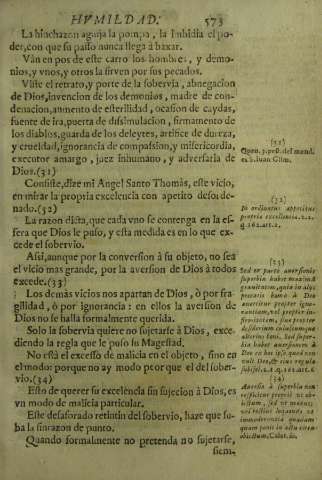 HVMILDAD. 573
La hinchazon aguija la pompa, la Imbidia el po-
der, con que su passo nunca llega â baxar.
Vàn en pos de este carro los hombres, y demo-
nios, y vnos, y otros la sirven por sus pecados.
Viste el retrato, y porte de la sobervia, abnegacion
de Dios, invencion de los demonios, madre de con-
denacion, aumento de esterilidad, ocasion de caydas,
fuente de ira, puerta de dissimulacion, firmamento de
los diablos, guarda de los deleytes, artifice de dureza,
y crueldad, ignorancia de compassion, y misericordia,
executor amargo, juez inhumano, y adversaria de
Dios. (31)
Consiste, dize mi Angel Santo Thomàs, este vicio,
en mirar la propria excelencia con apetito desorde-
nado. (32)
La razon dicta, que cada vno se contenga en la es-
fera que Dios le puso, y esta medida es en lo que ex-
cede el sobervio.
Assi, aunque por la conversion à su objeto, no sea
el vicio mas grande, por la aversion de Dios à todos
excede. (33)
Los demàs vicios nos apartan de Dios, ò por fra-
gilidad, ò por ignorancia: en ellos la aversion de
Dios no se halla formalmente querida.
Solo la sobervia quiere no sujetarse à Dios, exce-
diendo la regla que le puso su Magestad.
No està el excesso de malicia en el objeto, sino en
el modo: porque no ay modo peor que el del sober-
vio. (34)
Esto de querer su excelencia sin sujecion à Dios, es
vn modo de malicia particular.
Este desaforado retintin del sobervio, haze que su-
ba la sinrazon de punto.
Quando formalmente no pretenda no sujetarse,
siem-
(31)
(32)
In ordinatus appetitus
propria excelentia. 2. 2.
q. 162. art. 2.
(33)
Sed ex parte aversionis
superbia habet maximã
gravitatem, quia in alijs
peccatis homo à Deo
avertitur propter igno-
rantiam, vel propter in-
(34)